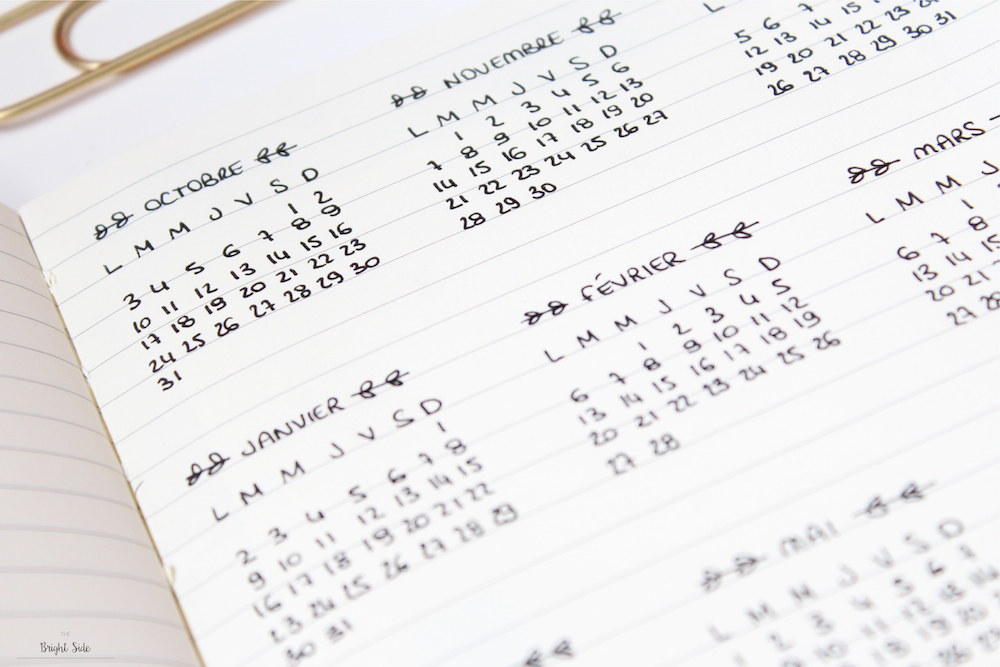 OCTOBRE
L M M J V S D
1 2
3 4 5 6 7 8 9
10 11 12 13 14 15 16
17 18 19 20 21 22 23
24 25 26 27 28 29 30
31
NOVEMBRE
L M M J V S D
1 2 3 4 5 6
7 8 9 10 11 12 13
14 15 16 17 18 19 20
21 22 23 24 25 26 27
28 29 30
L
5 6 7
12 13 14 15
19 20 21 22 23
26 27 28 29 30 31
JANVIER
L M M J V S D
1
2 3 4 5 6 7 8
9 10 11 12 13 14 15
16 17 18 19 20 21 22
23 24 25 26 27 28 29
30 31
FÉVRIER
L M M J V S D
1 2 3 4 5
6 7 8 9 10 11 12
13 14 15 16 17 18 19
20 21 22 23 24 25 26
27 28
MARS
L M M J
1
6 7 8
13 14 15
20 21
27 28
MAI
L M M J V S D
1 2 3 4 5 6 7
THE
Bright Side